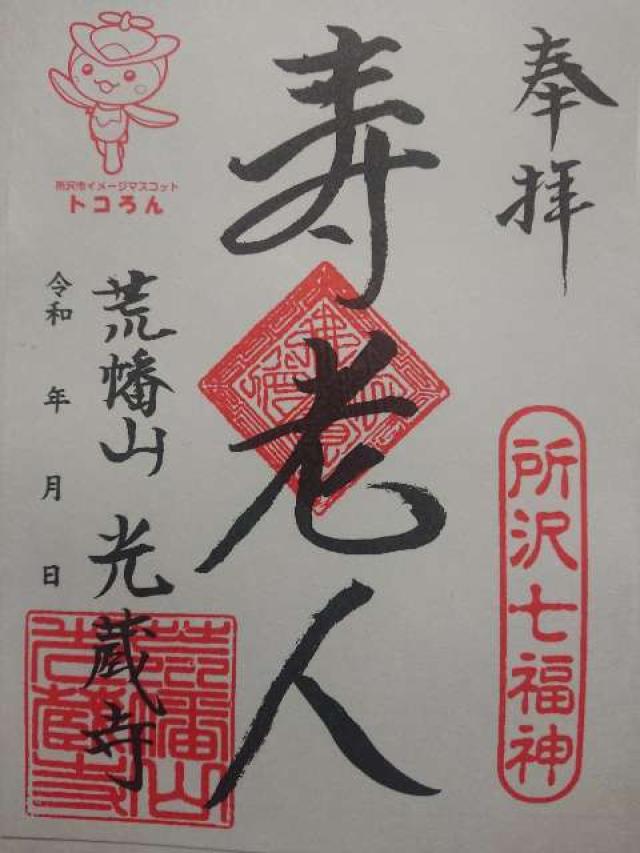 奉拝
所沢七福神
寿老人
所沢市イメージマスコット
トコろん
荒幡山 光蔵寺
令和 年 月 日
荒幡山
光蔵寺